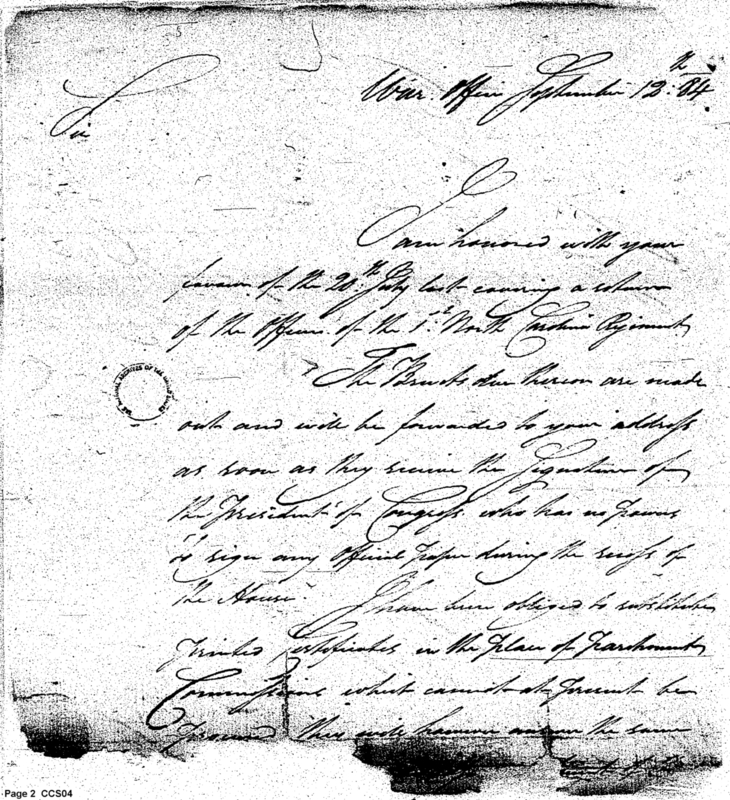 War Office September 12th 84
Sir
I am honored with your
favour of the 20th July last covering a return
of the Officers of the 1st North Carolina Regiment
The Brevets due thereon are made
out and will be forwarded to your address
as soon as they receive the Signature of
the President of Congress who has no powers
to sign any Official paper during the recess of
the House.
I have been obliged to substitute
printed Certificates in the place of parchment
Commissions which cannot at present be
procured they will however answer the same
Page 2 CCS04